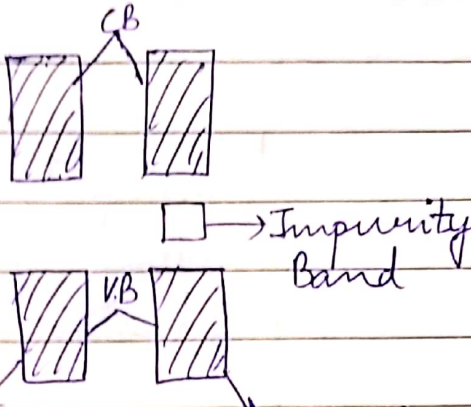 CB
Impurity
Band
V.B